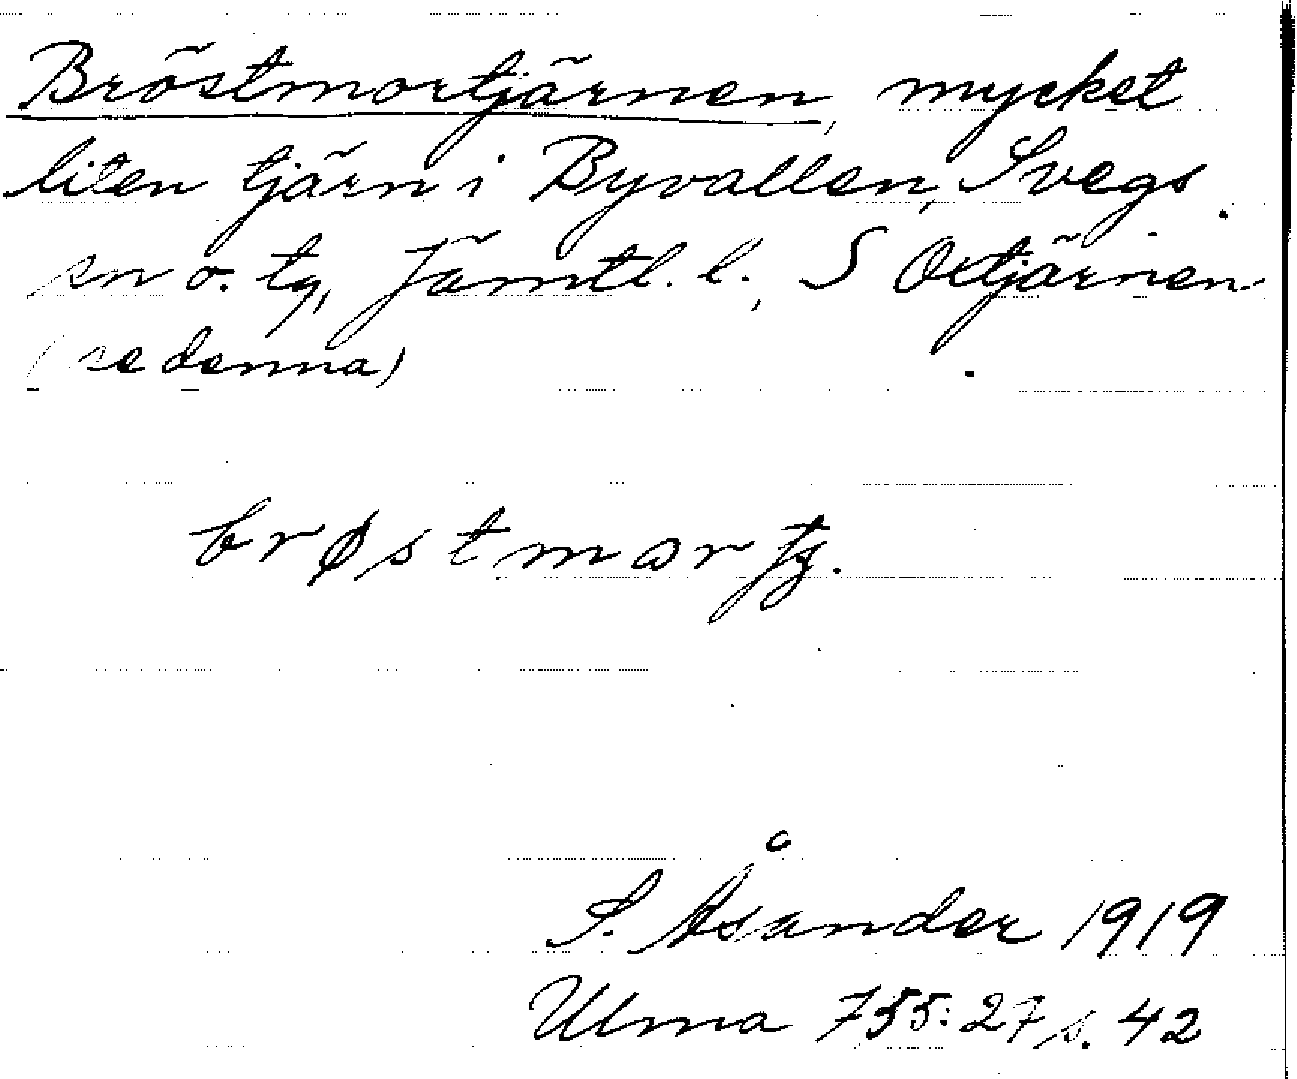 Bröstmortjärnen, mycket
liten tjärn i Byvallen, Svegs
sn o. tg, Jämtl. l., S Oxtjärnen
(se denna)
S. Åsander 1919
Ulma 755:27 s. 42